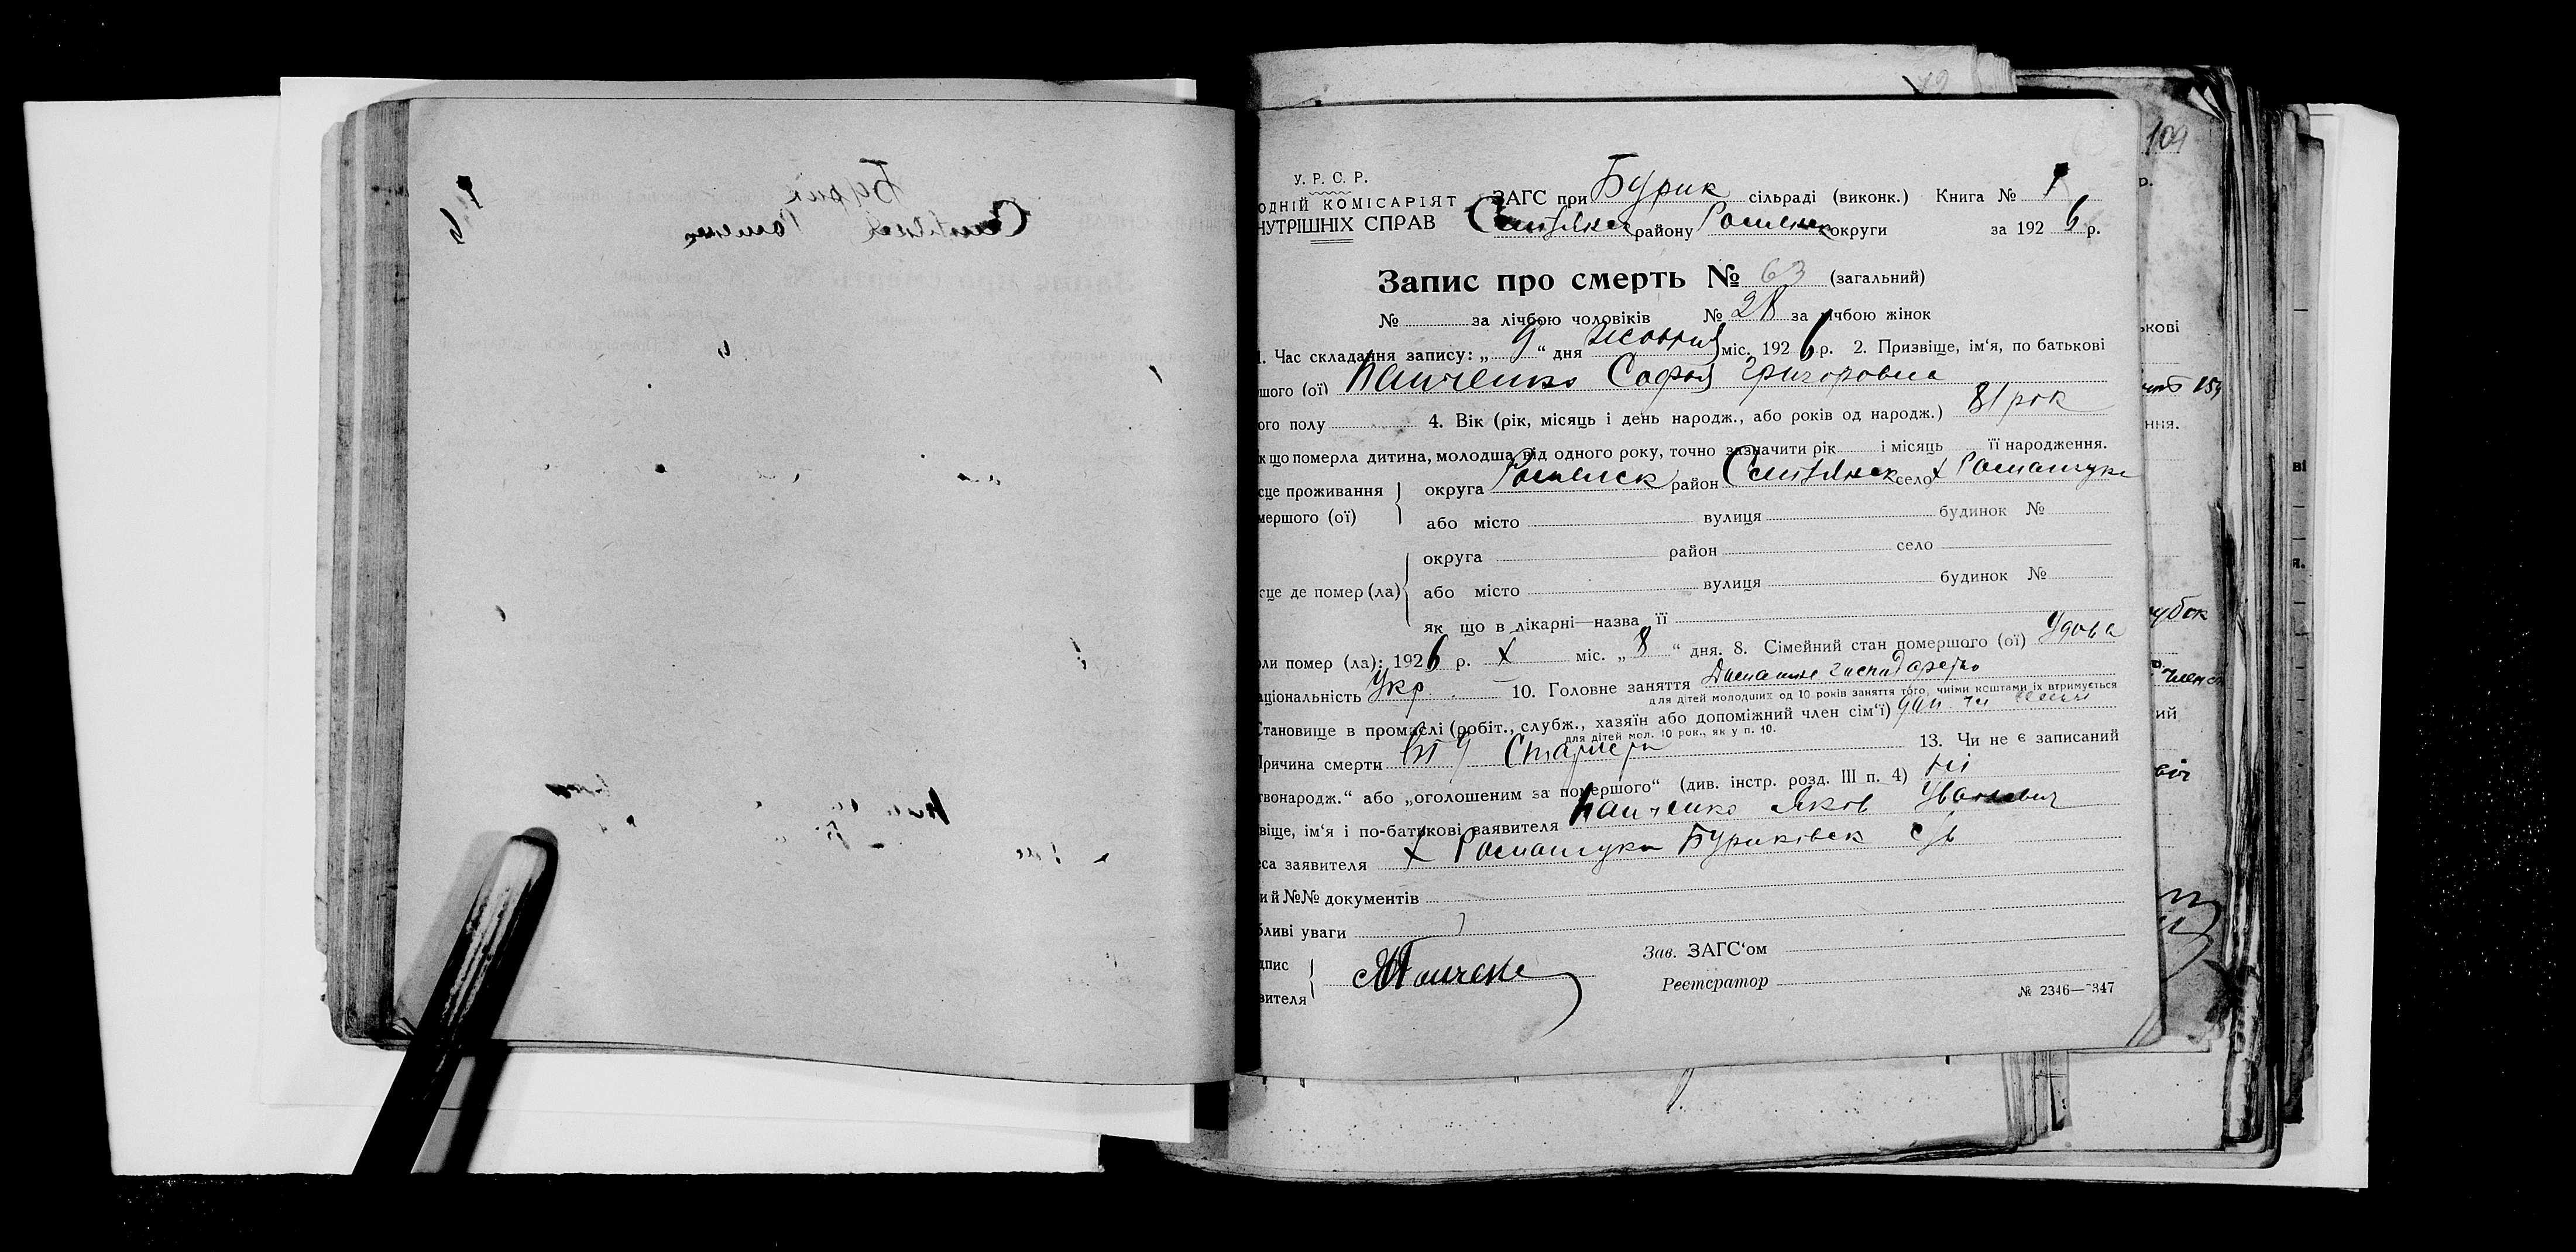 109
У. Р. С. Р.
ОДНІЙ КОМІСАРІЯТ ЗАГС при Бурик сільраді (виконк.) Книга № 1
НУТРІШНІХ СПРАВ району Роменск округи за 1926 р.
Запис про смерть № 63 (загальний)
№ за лічбою чоловіків № 28 за лічбою жінок
1. Час складання запису: „ 9 “ дня жовтня міс. 1926 р. 2. Призвіще, ім‘я, по батькові
шого (ої) Панченко Софья Григоровна
ого полу 4. Вік (рік, місяць і день народж., або років од народж.) 81 рок
к що померла дитина, молодша від одного року, точно зазначити рік і місяць її народження.
сце проживання округа Роменск район село х Ромашука
мершого (ої) або місто вулиця будинок №
округа район село
сце де помер (ла) або місто вулиця будинок №
як що в лікарні—назва її
оли помер (ла): 1926 р. X міс. „ 8 “ дня. 8. Сімейний стан помершого (ої) Удова
аціональність Укр. 10. Головне заняття Домашнє господарство
для дітей молодших од 10 років заняття того, чиїми коштами їх втримується
Становище в промислі (робіт., служб., хазяїн або допоміжний член сім‘ї) доп. чл
для дітей мол. 10 рок., як у п. 10.
Причина смерти від Старости 13. Чи не є записаний
твонародж.“ або „оголошеним за помершого“ (див. інстр. розд. III п. 4) Ні
віще, ім‘я і по-батькові заявителя Панченко Яков Іванович
еса заявителя х Ромашука Буриківск с/р
и й №№ документів
бливі уваги
дпис Зав. ЗАГС‘ом
вителя Панченко Реєстратор
№ 2346—347